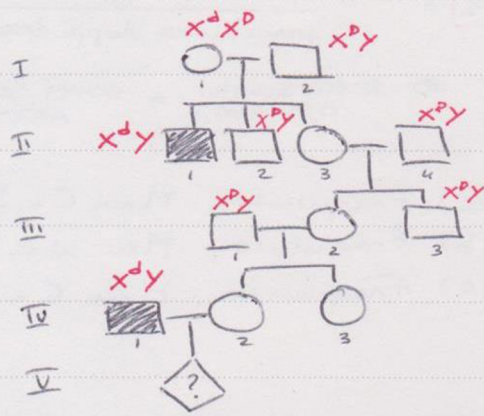 X^d X^D
I X^D Y
1 2
X^D Y X^D Y
II X^d Y
1 2 3 4
X^D Y X^D Y
III
1 2 3
X^d Y
IV
1 2 3
V ?